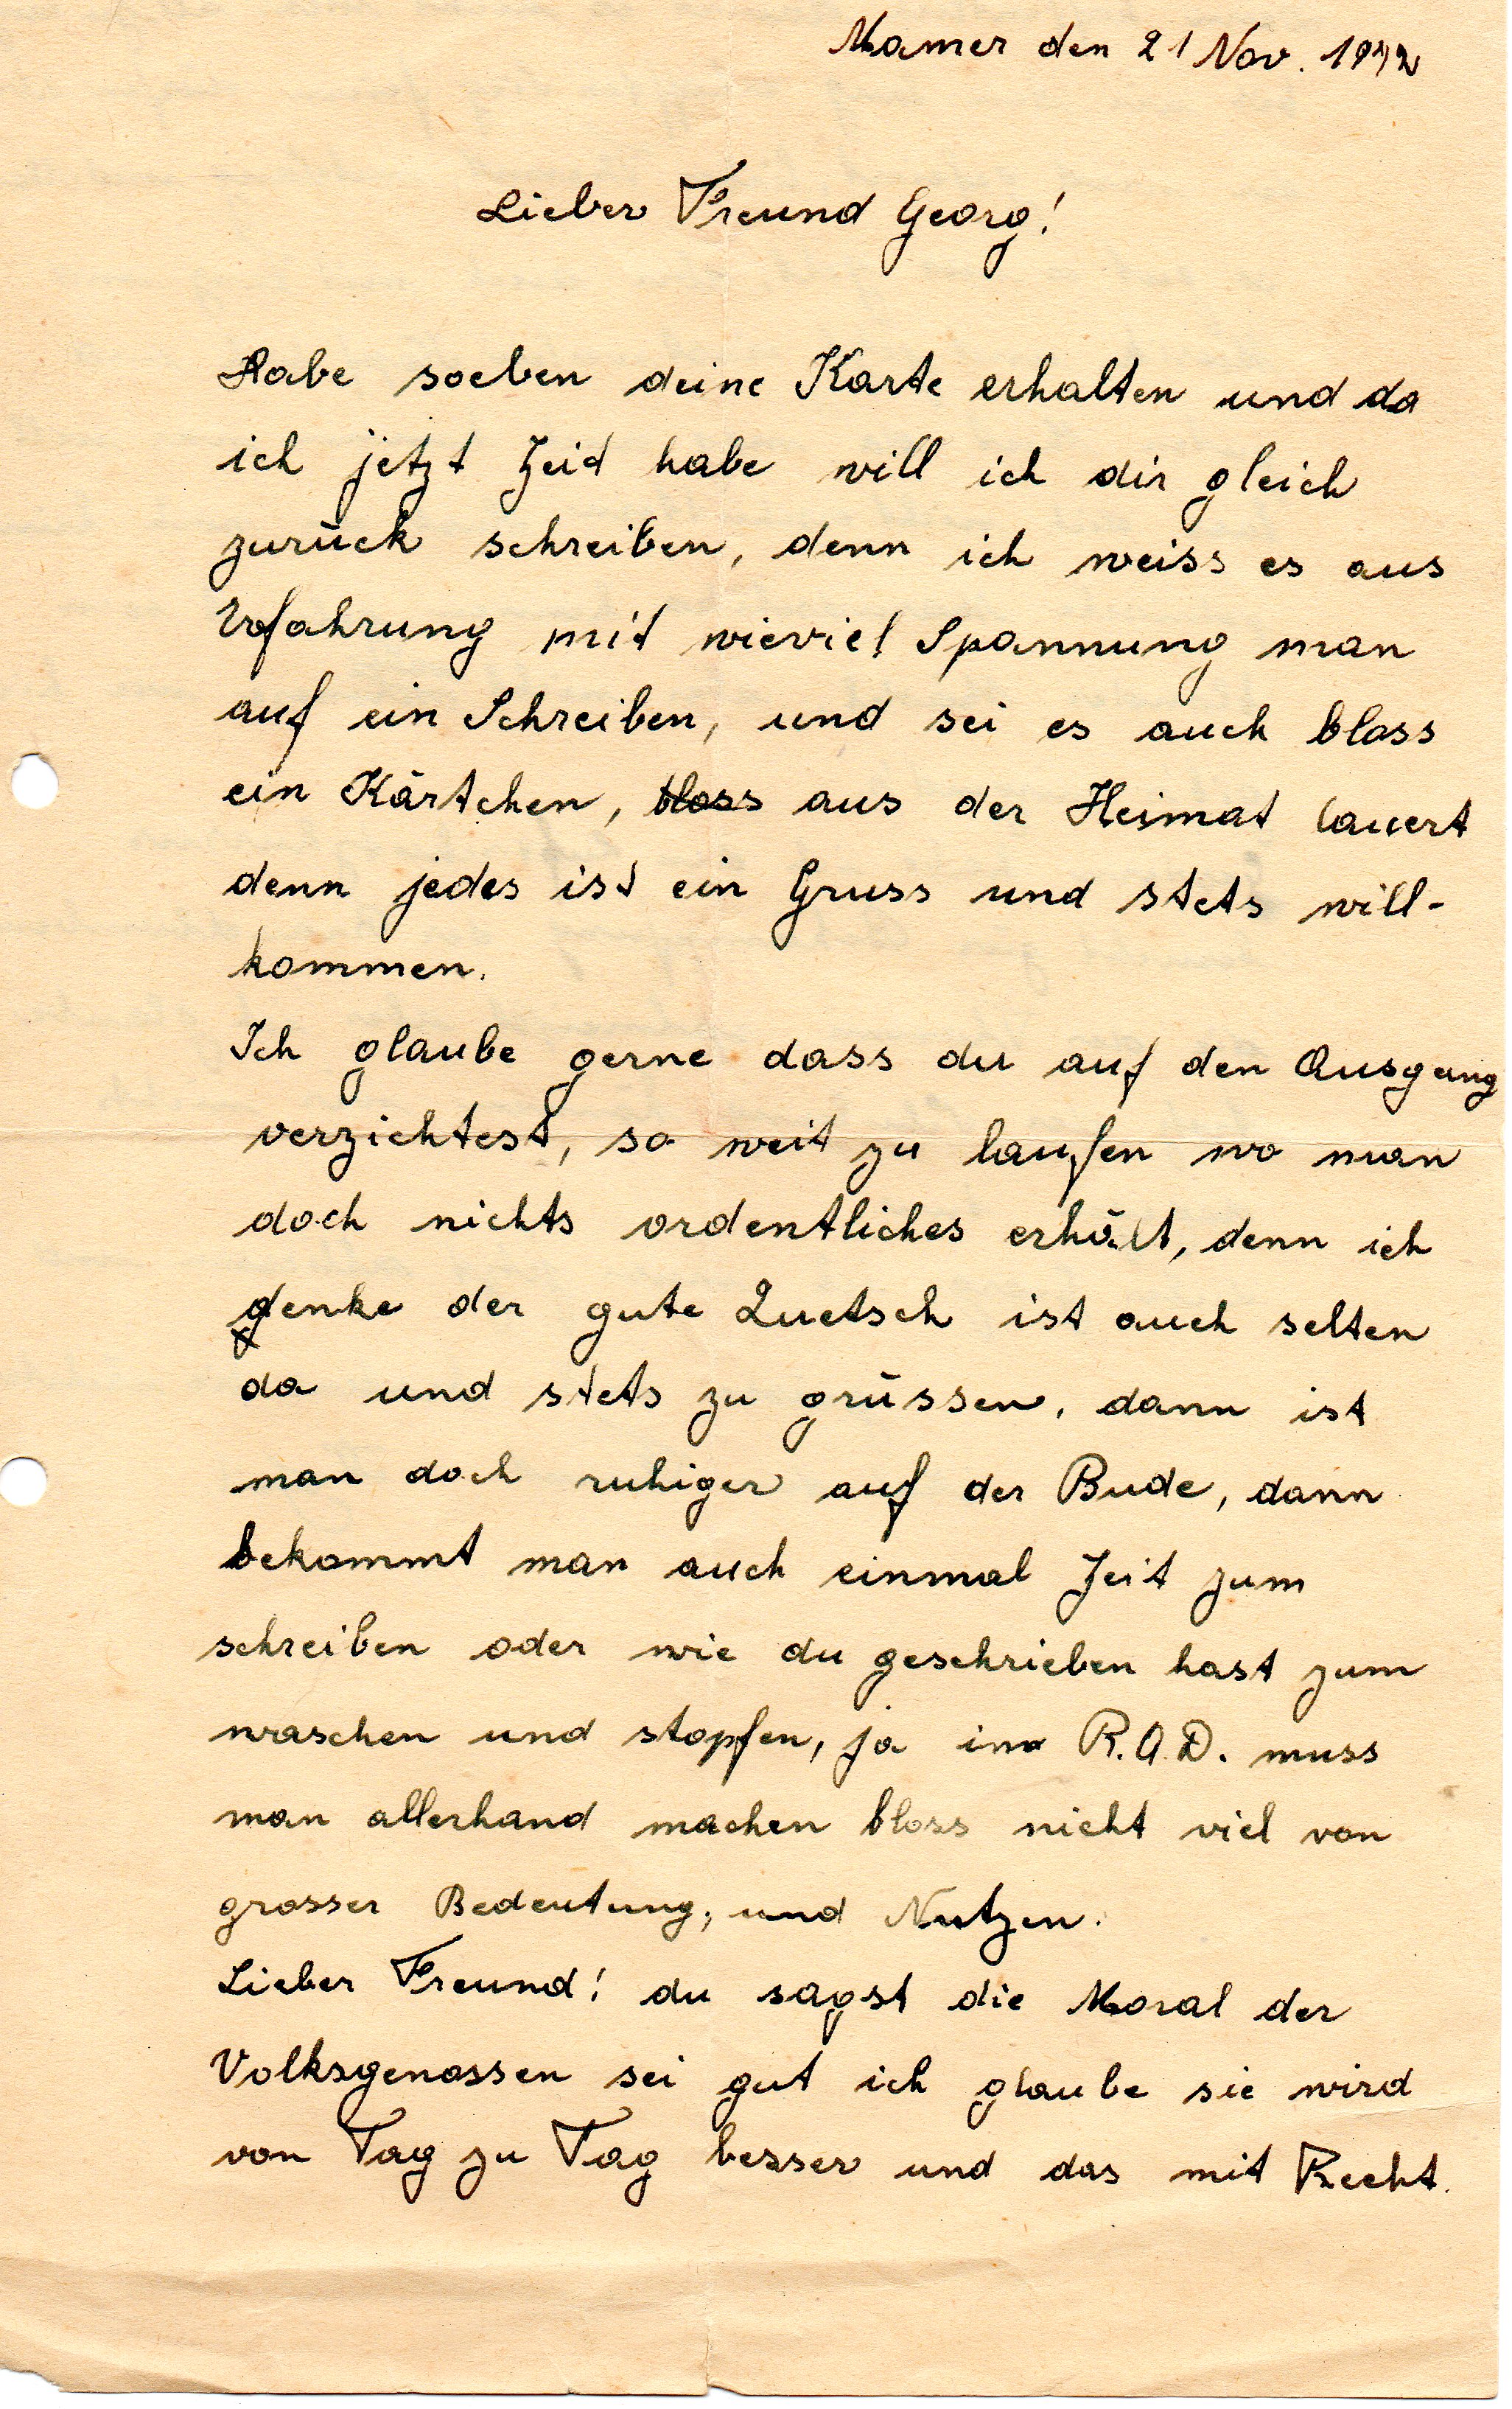 Mamer den 21 Nov. 1942
Lieber Freund Georg!
Habe soeben deine Karte erhalten und da
ich jetzt Zeid habe will ich dir gleich
zurück schreiben, denn ich weiss es aus
Erfahrung mit wieviel Spannung man
auf ein Schreiben, und sei es auch bloss
ein Kärtchen, bloss aus der Heimat lauert
denn jedes ist ein Gruss und stets will-
kommen.
Ich glaube gerne dass du auf den Ausgang
verzichtest, so weit zu laufen wo man
doch nichts ordentliches erhält, denn ich
denke der gute Quetsch ist auch selten
da und stets zu grüssen, dann ist
man doch ruhiger auf der Bude, dann
bekommt man auch einmal Zeit zum
schreiben oder wie du geschrieben hast zum
waschen und stopfen, ja im R.A.D. muss
man allerhand machen bloss nicht viel von
grosser Bedeutung, und Nutzen.
Lieber Freund! du sagst die Moral der
Volksgenossen sei gut ich glaube sie wird
von Tag zu Tag besser und das mit Recht.